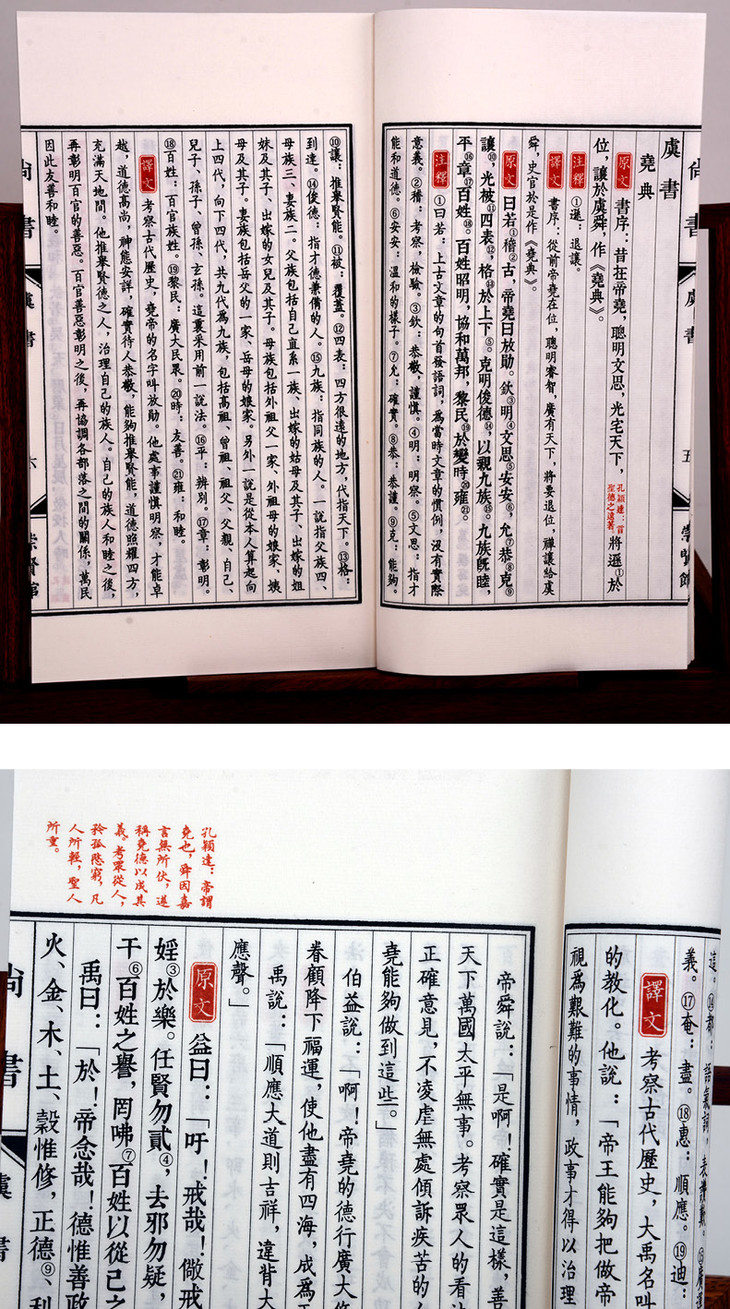 虞書
堯典
原文 書序：昔在帝堯，聰明文思，光宅天下，孔穎達：言聖德之遠著。將遜①於
位，讓於虞舜，作《堯典》。
注釋 ①遜：退讓。
譯文 書序：從前帝堯在位，聰明睿智，廣有天下，將要退位，禪讓給虞
舜，史官於是作《堯典》。
原文 曰若①稽②古，帝堯曰放勛。欽③明④文思⑤安安⑥，允⑦恭⑧克⑨
讓⑩，光被⑪四表⑫，格⑬於上下。克明俊德⑭，以親九族⑮。九族既睦，
平⑯章⑰百姓⑱。百姓昭明，協和萬邦，黎民⑲於變時⑳雍㉑。
注釋 ①曰若：上古文章的句首發語詞，為當時文章的慣例，沒有實際
意義。②稽：考察，檢驗。③欽：恭敬，謹慎。④明：明察。⑤文思：指才
能和道德。⑥安安：溫和的樣子。⑦允：確實。⑧恭：恭謹。⑨克：能夠。
尚書 虞書 五 崇賢館
⑩讓：推舉賢能。⑪被：覆蓋。⑫四表：四方很遠的地方，代指天下。⑬格：
到達。⑭俊德：指才德兼備的人。⑮九族：指同族的人。一說指父族四、
母族三、妻族二。父族包括自己直系一族、出嫁的姑母及其子、出嫁的姐
妹及其子、出嫁的女兒及其子。母族包括外祖父一家、外祖母的娘家、姨
母及其子。妻族包括岳父的一家、岳母的娘家。另外一說是從本人算起向
上四代，向下四代，共九代為九族，包括高祖、曾祖、祖父、父親、自己、
兒子、孫子、曾孫、玄孫。這裏采用前一說法。⑯平：辨別。⑰章：彰明。
⑱百姓：百官族姓。⑲黎民：廣大民眾。⑳時：友善。㉑雍：和睦。
譯文 考察古代歷史，堯帝的名字叫放勛。他處事謹慎明察，才能卓
越，道德高尚，神態安詳，確實待人恭敬，能夠推舉賢能，道德照耀四方，
充滿天地間。他推舉賢德之人，治理自己的族人。自己的族人和睦之後，
再彰明百官的善惡。百官善惡彰明之後，再協調各部落之間的關係，萬民
因此友善和睦。
尚書 虞書 六 崇賢館
義。⑰奄：盡。⑱惠：順應。⑲迪：
譯文 考察古代歷史，大禹名叫
的教化。他說：「帝王能夠把做帝
視為艱難的事情，政事才得以治理
孔穎達：帝謂
堯也，舜因嘉
言無所伏，遂
稱堯德以成其
義。考眾從人，
矜孤愍窮，凡
人所輕，聖人
所重。
帝舜說：「是啊！確實是這樣，善
天下萬國太平無事。考察眾人的看法
正確意見，不凌虐無處傾訴疾苦的人
堯能夠做到這些。」
伯益說：「啊！帝堯的德行廣大
眷顧降下福運，使他盡有四海，成為天
禹說：「順應大道則吉祥，違背大
應聲。」
原文 益曰：「吁！戒哉！儆戒
婬③於樂。任賢勿貳④，去邪勿疑，
干⑥百姓之譽，罔咈⑦百姓以從己之
禹曰：「於！帝念哉！德惟善政
火、金、木、土、穀惟修，正德⑨、利
尚書 虞書